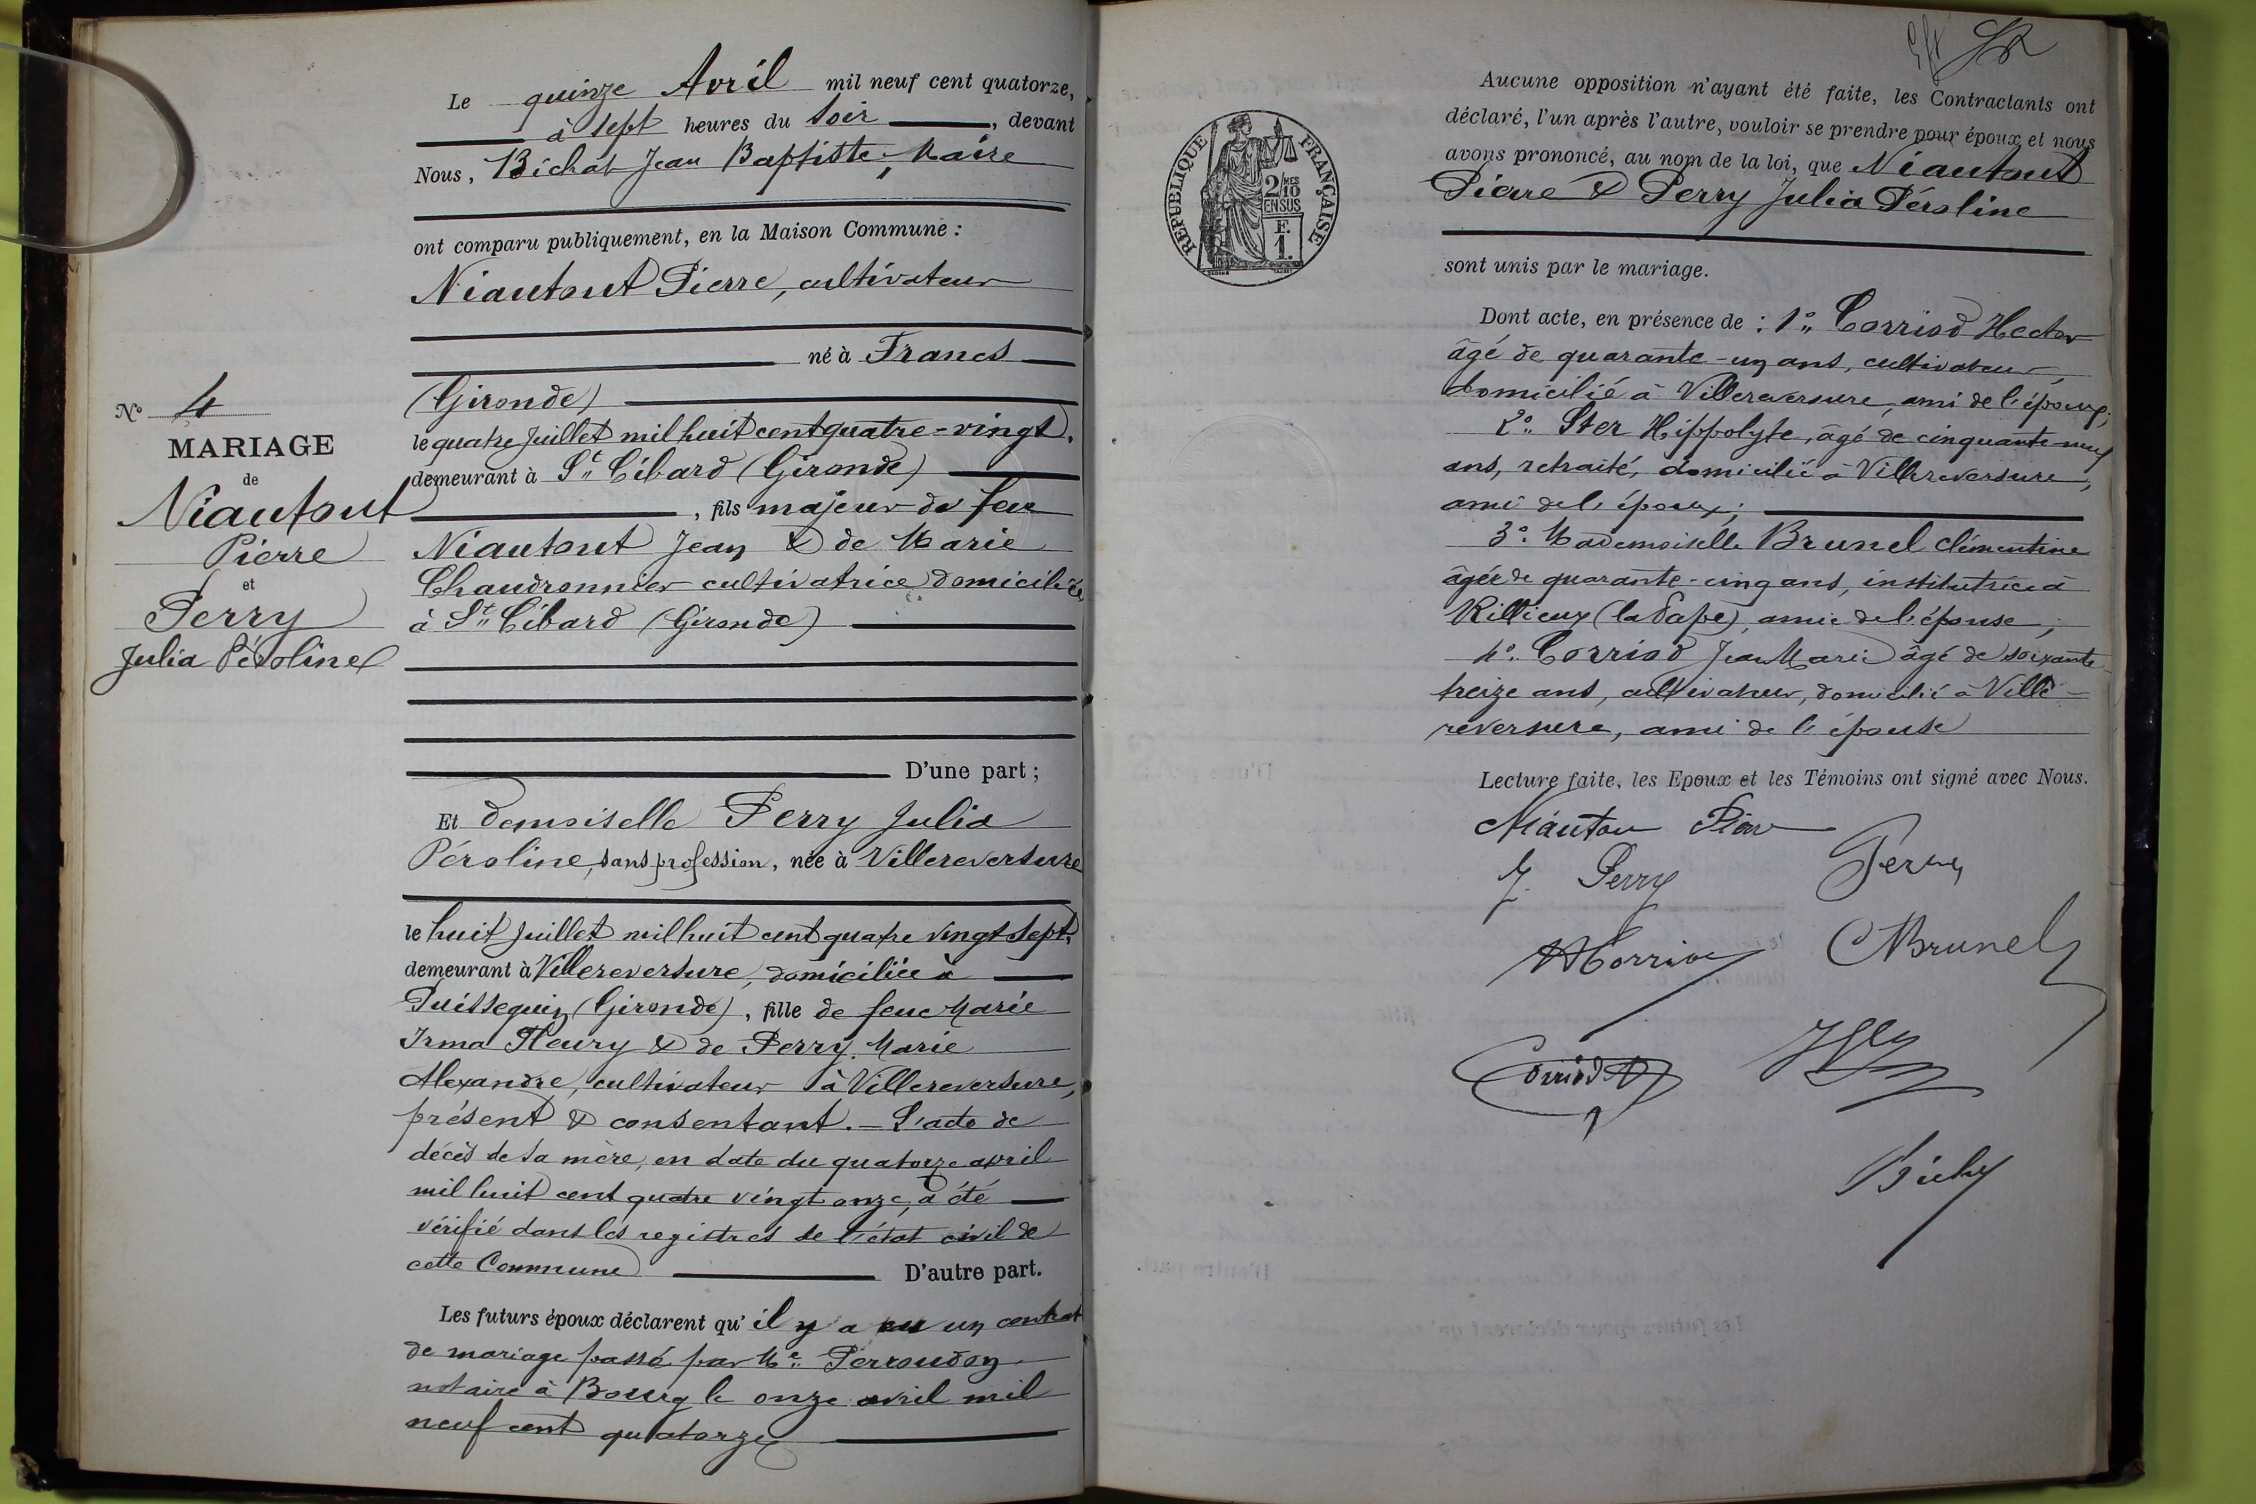 Le quinze Avril mil neuf cent quatorze,
à sept heures du soir, devant
Nous, Bichat Jean Baptiste, Maire
ont comparu publiquement, en la Maison Commune :
Niautout Pierre, cultivateur
né à Francs
(Gironde)
le quatre Juillet mil huit cent quatre-vingt,
demeurant à St Cibard (Gironde)
, fils majeur de feu
Niautout Jean & de Marie
Chaudronnier cultivatrice domiciliée
à St Cibard (Gironde)
D'une part ;
Et demoiselle Perry Julia
Péroline, sans profession, née à Villereversure
le huit Juillet mil huit cent quatre vingt sept,
demeurant à Villereversure, domiciliée à
Puisseguin (Gironde), fille de feue Marie
Irma Fleury & de Perry Marie
Alexandre, cultivateur à Villereversure,
présent & consentant. — L'acte de
décès de sa mère, en date du quatorze avril
mil huit cent quatre vingt onze, a été
vérifié dans les registres de l'état civil de
cette Commune D'autre part.
Les futurs époux déclarent qu'il y a eu un contrat
de mariage passé par Me Perroudon
notaire à Bourg le onze avril mil
neuf cent quatorze
No 4
MARIAGE
de
Niautout
Pierre
et
Perry
Julia Péroline
RÉPUBLIQUE FRANÇAISE
2/10 MES
EN SUS
F.
1.
Aucune opposition n'ayant été faite, les Contractants ont
déclaré, l'un après l'autre, vouloir se prendre pour époux et nous
avons prononcé, au nom de la loi, que Niautout
Pierre & Perry Julia Péroline
sont unis par le mariage.
Dont acte, en présence de : 1° Corriod Hector
âgé de quarante-un ans, cultivateur,
domicilié à Villereversure, ami de l'époux;
2° Ster Hippolyte, âgé de cinquante neuf
ans, retraité, domicilié à Villereversure,
ami de l'époux;
3° Mademoiselle Brunel Clémentine
âgée de quarante-cinq ans, institutrice à
Rillieux (la Pape), amie de l'épouse;
4° Corriod Jean Marie âgé de soixante
treize ans, cultivateur, domicilié à Ville-
reversure, ami de l'épouse
Lecture faite, les Epoux et les Témoins ont signé avec Nous.
Niautou Pierre
J. Perry Perry
CBrunel
Corriod